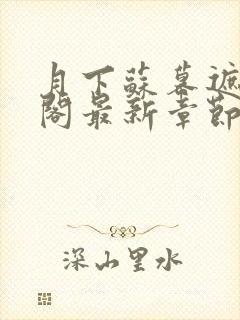 月下蘇暮遮
閣最新章節
深山里水